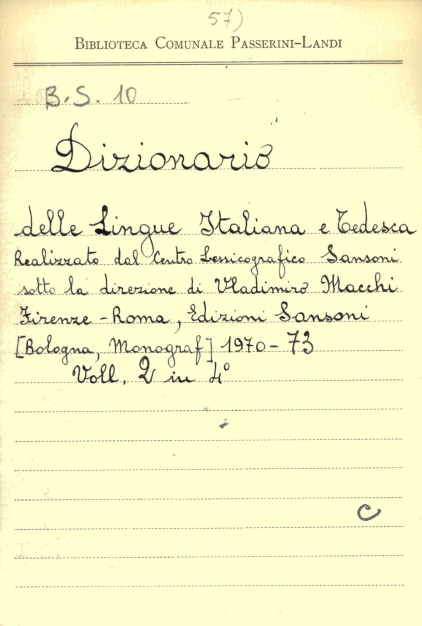 57)
BIBLIOTECA COMUNALE PASSERINI-LANDI
B.S. 10
Dizionario
delle Lingue Italiana e Tedesca
Realizzato dal Centro Lessicografico Sansoni
sotto la direzione di Vladimiro Macchi
Firenze - Roma, Edizioni Sansoni
[Bologna, Monograf] 1970 - 73
Voll. 2 in 4°
C